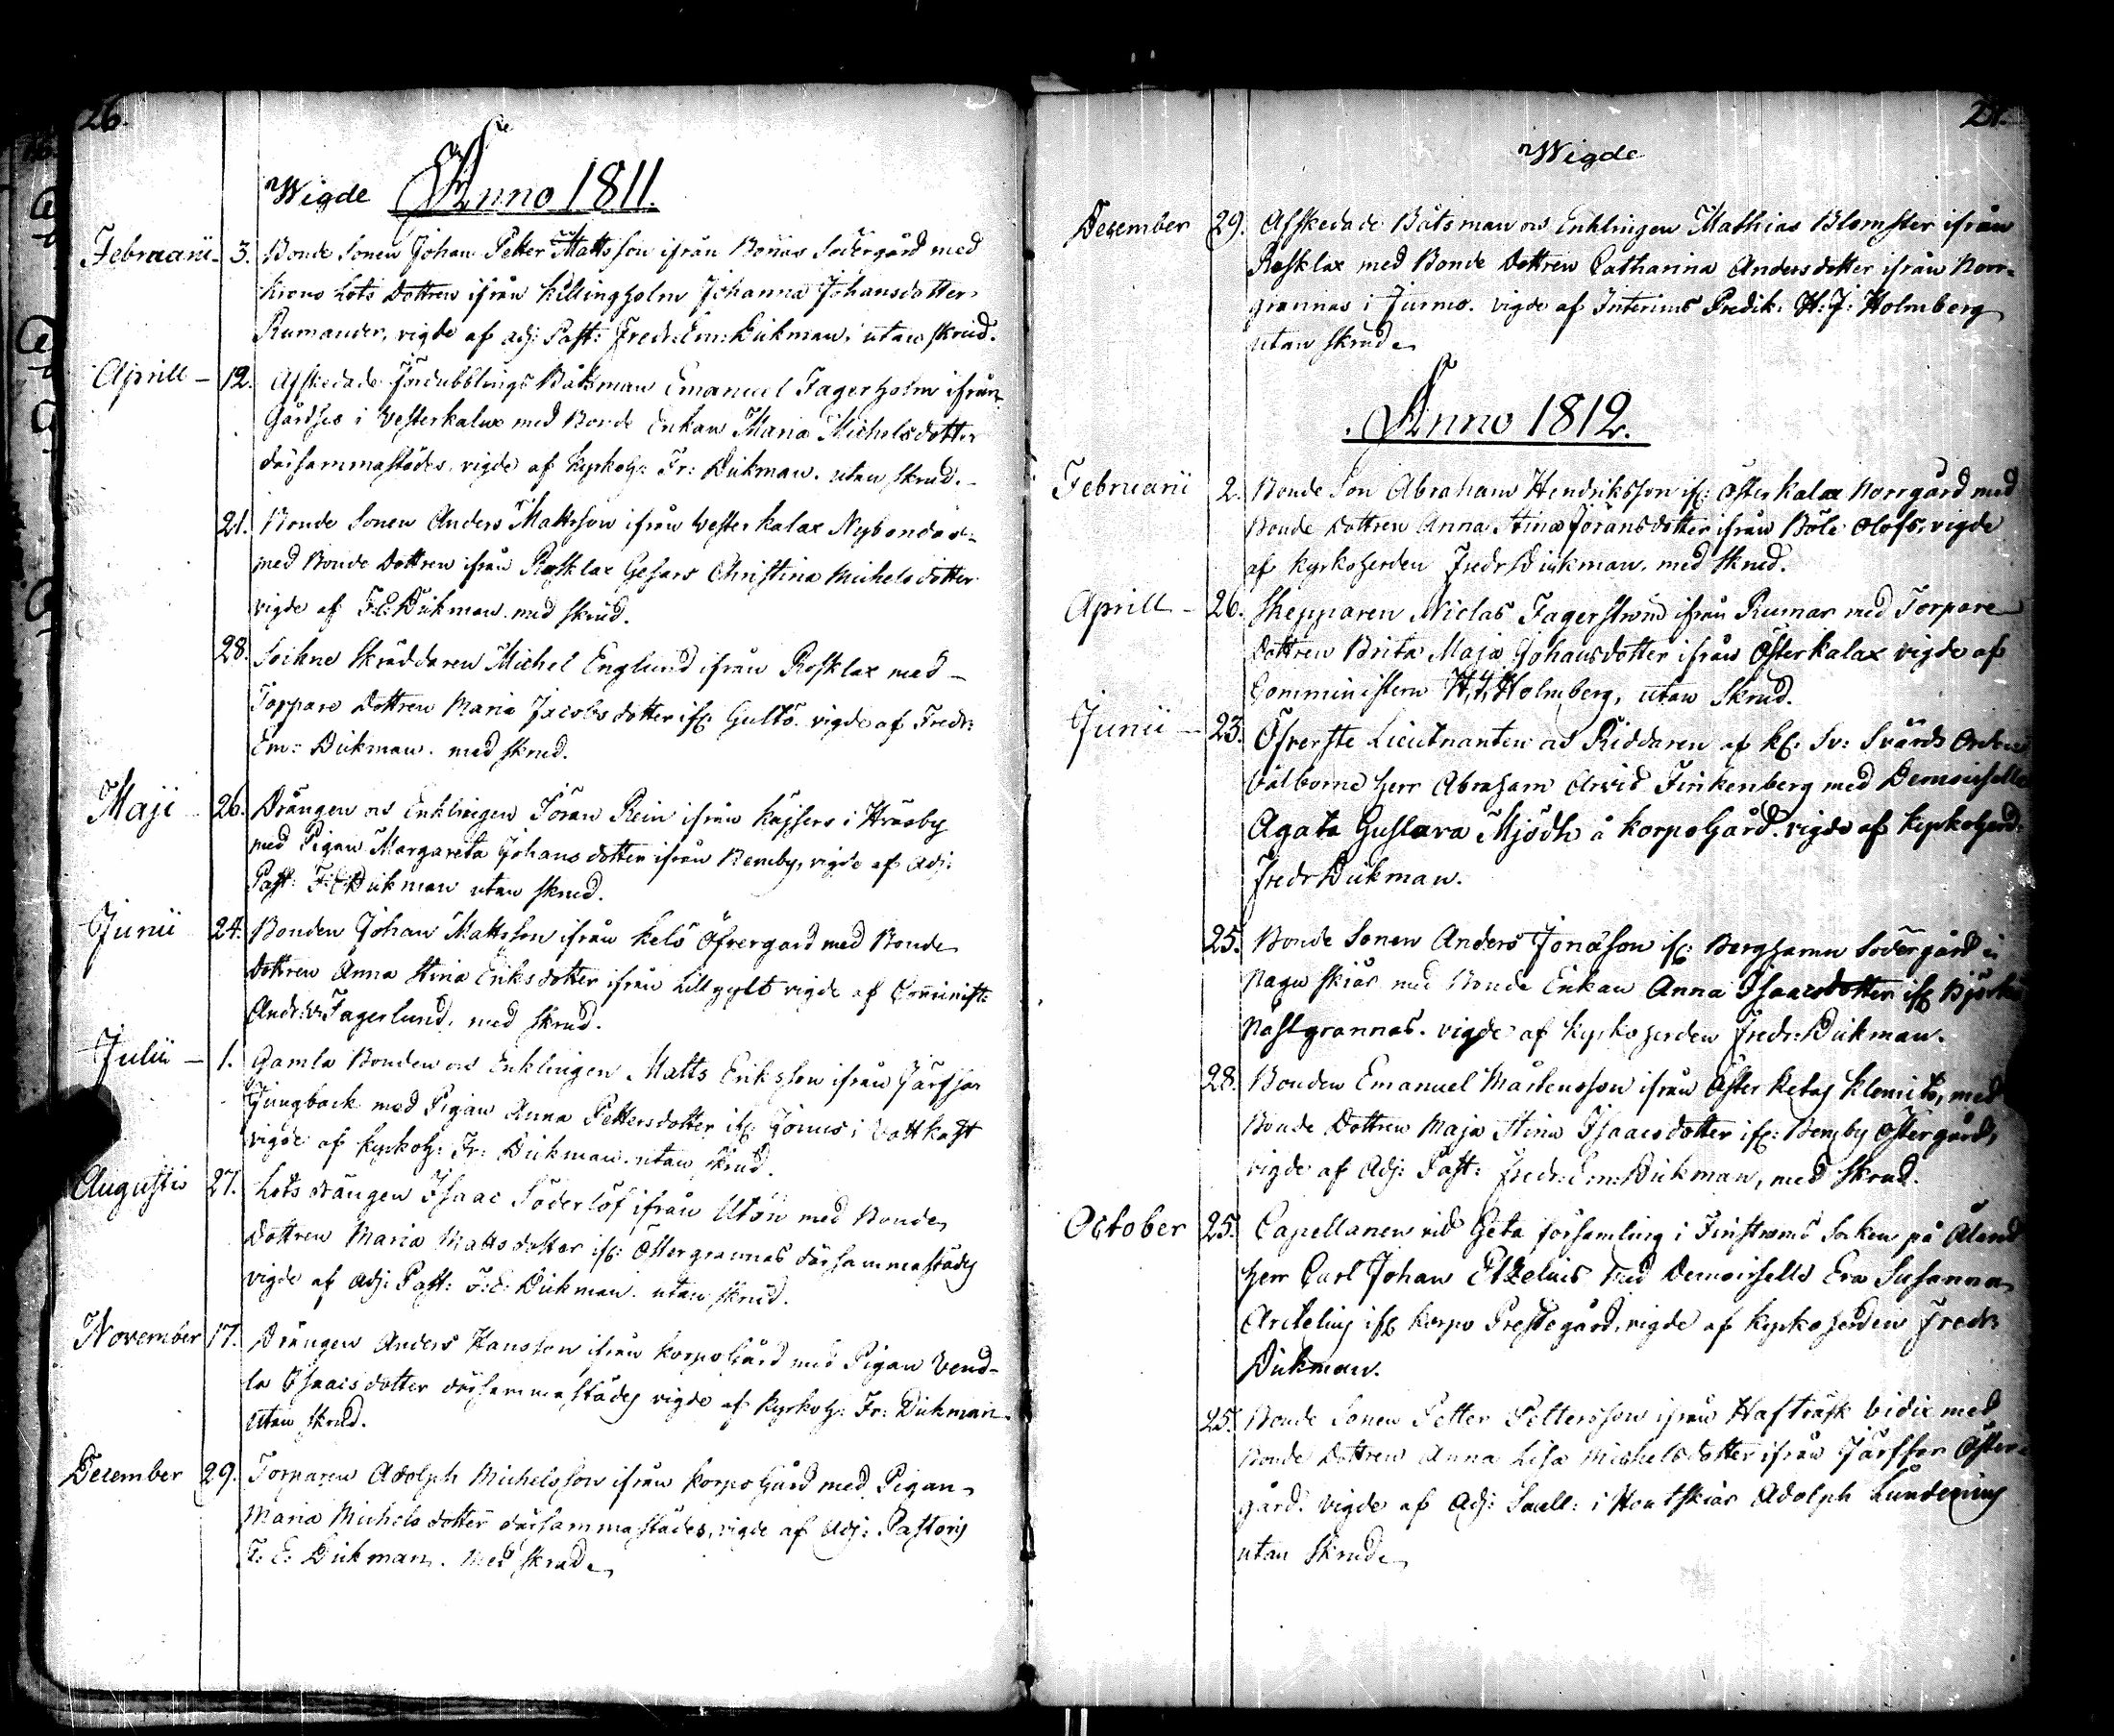 26.
Wigde Anno 1811.
Februarii - 3. Bonde Sonen Johan Petter Mattsson ifrån Bonäs Södergård med
Krono Lots Dottren ifrån Källingholm Johanna Johansdotter
Rumander, vigde af adj: Past: Fredr: Em: Dickman, utan skrud.
Aprill - 12. Afskedade Fördubblings Båtsman Emanuel Fagerholm ifrån
i Vesterkalax med Bonde Enkan Maria Michelsdotter
därsammastädes, vigde af Kyrkoh: Fr: Dickman. utan skrud.
21. Bonde Sonen Anders Mattsson ifrån Vesterkalax Nybondas
med Bonde Dottren ifrån Rosklax Christina Michelsdotter
vigde af F:E: Dickman. med skrud.
28. Sockne Skräddaren Michel Englund ifrån Rosklax med
Torpare Dottren Maria Jacobsdotter ifr: Gultö. vigde af Fredr:
Em: Dickman. med skrud.
Maji - 26. Drängen och Enklingen Jöran Rein ifrån Kajsers i
med Pigan Margareta Johansdotter ifrån Remby, vigde af Adj:
Past: F:E: Dickman utan skrud.
Junii 24. Bonden Johan Mattsson ifrån Kelö Öfvergård med Bonde
Dottren Anna Stina Eriksdotter ifrån Lillgylt vigde af Comminist:
Andr: Fagerlund, med skrud.
Julii - 1. Gamla Bonden och Enklingen Matts Eriksson ifrån Järfsor
med Pigan Anna Pettersdotter ifr: Jönus i Vattkast
vigde af Kyrkoh: Fr: Dickman. utan skrud.
Augusti 27. Lots drängen Isaac Söderlöf ifrån Utön med Bonde
Dottren Maria Mattsdotter ifr: Östergrannas därsammastädes
vigde af Adj: Past: F:E: Dickman. utan skrud.
November 17. Drängen Anders Hansson ifrån Korpo Gård med Pigan Vend-
la Isaacsdotter därsammastädes vigde af Kyrkoh: Fr: Dickman
utan skrud.
December 29. Torparen Adolph Michelsson ifrån Korpo Gård med Pigan
Maria Michelsdotter därsammastädes, vigde af Adj: Pastoris
F: E: Dickman. med skrud.
27.
Wigde
December 29. Afskedade Båtsman och Enklingen Mathias Blomster ifrån
Rosklax med Bonde Dottren Catharina Andersdotter ifrån Norr-
grannas i Jurmo. vigde af Interims Predik: H: J: Holmberg
utan skrud.
Anno 1812.
Februarii 2. Bonde Son Abraham Hendriksson ifr: Österkalax Norrgård med
Bonde Dottren Anna Stina Jöransdotter ifrån Böle Olofs, vigde
af Kyrkoherden Fredr Dickman, med skrud.
Aprill - 26. Skepparen Niclas Fagerström ifrån Rumar med Torpare
Dottren Brita Maja Johansdotter ifrån Österkalax vigde af
Comministern H, J, Holmberg, utan skrud.
Junii - 23. Öfverste Lieutnanten och Riddaren af Kl: Sv: Svärds Orden
Välborne Herr Abraham Arvid Finkenberg med Demoiselle
Agata Gustava Mjödh å Korpo Gård. vigde af Kyrkoherd:
Fredr Dickman.
25. Bonde Sonen Anders Jonasson ifr: Berghamn Södergård i
Nagu Skiär med Bonde Enkan Anna Isaacsdotter ifr Björkö
Nästgrannas. vigde af Kyrkoherden Fredr: Dickman.
28. Bonden Emanuel Mårtensson ifrån Öster Retais Klemets, med
Bonde Dottren Maja Stina Isaacsdotter ifr: Östergård,
vigde af Adj: Past: Fredr: Em: Dickman, med skrud.
October 25. Capellanen vid Geta församling i Finströms Socken på Åland
Herr Carl Johan Etzelius med Demoiselle Eva Susanna
Arctelius ifr Korpo Prestegård, vigde af Kyrkoherden Fredr:
Dickman.
25. Bonde Sonen Petter Pettersson ifrån Hafträsk Vidix med
Bonde Dottren Anna Lisa Michelsdotter ifrån Järfsor Öster-
gård. vigde af Adj: Sacell: i Houtskiär Adolph Lundenius
utan skrud.